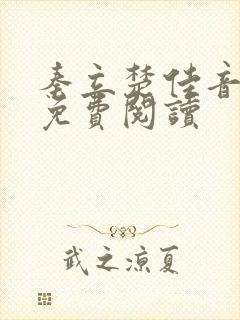 秦立楚佳音
免費閱讀
武之涼夏